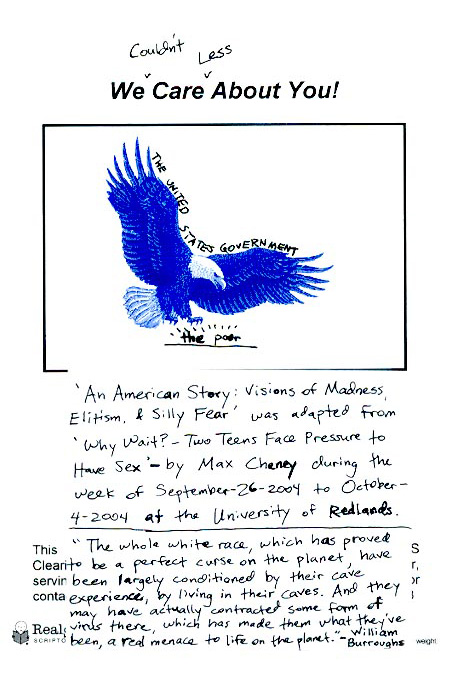 Couldn't Less
We Care About You!
THE UNITED STATES GOVERNMENT
the poor
'An American Story: Visions of Madness,
Elitism, & Silly Fear' was adapted from
'Why Wait? - Two Teens Face Pressure to
Have Sex' - by Max Cheney during the
week of September-26-2004 to October-
4-2004 at the University of Redlands.
This S
Clear r,
servin or
conta
"The whole white race, which has proved
to be a perfect curse on the planet, have
been largely conditioned by their cave
experience, by living in their caves. And they
may have actually contracted some form of
virus there, which has made them what they've
been, a real menace to life on the planet." - William
Burroughs
Real
SCRIPTO
weight